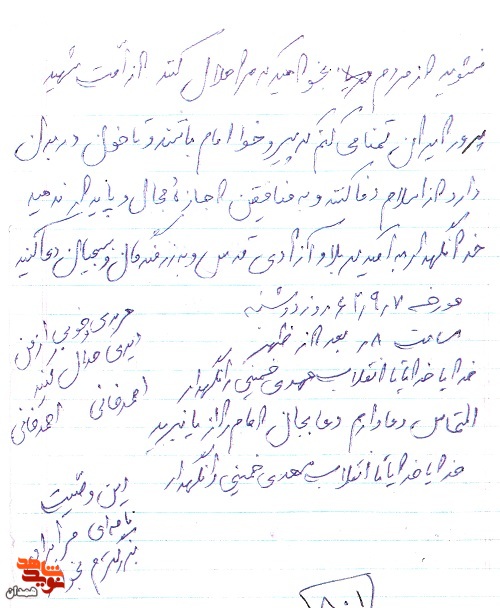 نشوید از مردم بخواهید که مرا حلال کنند از امت شهید
پرور ایران تمنا می کنم که پیرو خط امام باشند و تا خون در بدن
دارد از اسلام دفاع کنند و به منافقین اجازهٔ مجال و پایداری ندهید
خدا نگهدار به امید کربلا و آزادی قدس و به رزمندگان و بسیجیان دعا کنید
مورخه روز دوشنبه
ساعت ۸ بعد از ظهر
خدایا خدایا تا انقلاب مهدی خمینی را نگهدار
التماس دعا دارم دعا بجان امام را از یاد نبرید
خدایا خدایا تا انقلاب مهدی خمینی را نگهدار
هر بدی و خوبی از من
دیدی حلال کنید
احمدخانی احمدخانی
این وصیت
نامه‌ای مرا برای
بخو
نوید شاهد
همدان
۸۰۱